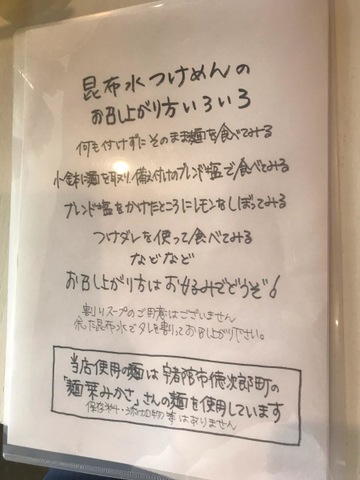 昆布水つけめんの
お召し上がり方いろいろ
何も付けずにそのまま麺を食べてみる
小鉢に麺を取り、備え付けのブレンド塩で食べてみる
ブレンド塩をかけたところにレモンをしぼってみる
つけダレを使って食べてみる
などなど
お召し上がり方はお好みでどうぞ
割りスープのご用意はございません
余った昆布水でタレを割ってお召し上がり下さい。
当店使用の麺は宇都宮市徳次郎町の
「麺栞みかさ」さんの麺を使用しています
保存料・添加物等はありません